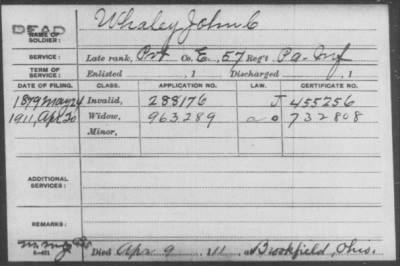 DEAD
NAME OF SOLDIER: Whaley John C
SERVICE: Late rank, Pvt Co. E, 57 Reg't Pa. Inf
TERM OF SERVICE: Enlisted , 1 Discharged , 1
DATE OF FILING. CLASS. APPLICATION NO. LAW. CERTIFICATE NO.
1879 May 24 Invalid, 288176 J 455256
1911, Apr 20 Widow, 963289 a o 732808
Minor,
ADDITIONAL SERVICES:
REMARKS:
Died Apr 9, 111, at Brookfield, Ohio.